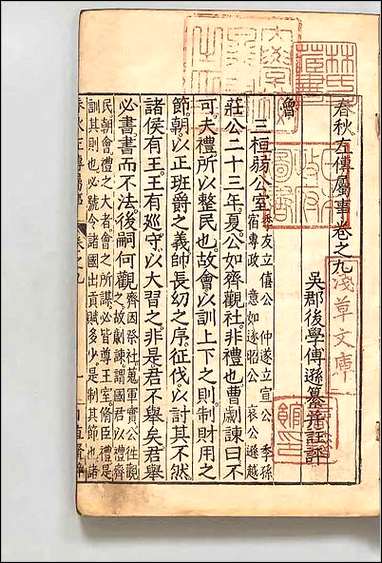 春秋左傳屬事卷之九
吳郡後學傅遜纂并註評
魯
三桓弱公室 季友立僖公 仲遂立宣公 季孫宿專政 意如逐昭公 哀公遜越
莊公二十三年夏公如齊觀社非禮也曹劌諫曰不
可夫禮所以整民也故會以訓上下之則制財用之
節朝以正班爵之義帥長幼之序征伐以討其不然
諸侯有王王有巡守以大習之非是君不舉矣君舉
必書書而不法後嗣何觀 齊因祭社蒐軍實公往觀之故劌諫謂國君以禮齊
民朝會禮之大者會之所謀必皆尊王室脩臣禮是
訓其則也必號令諸國出貢賦多少是制其節也諸
淺草文庫
林氏藏書